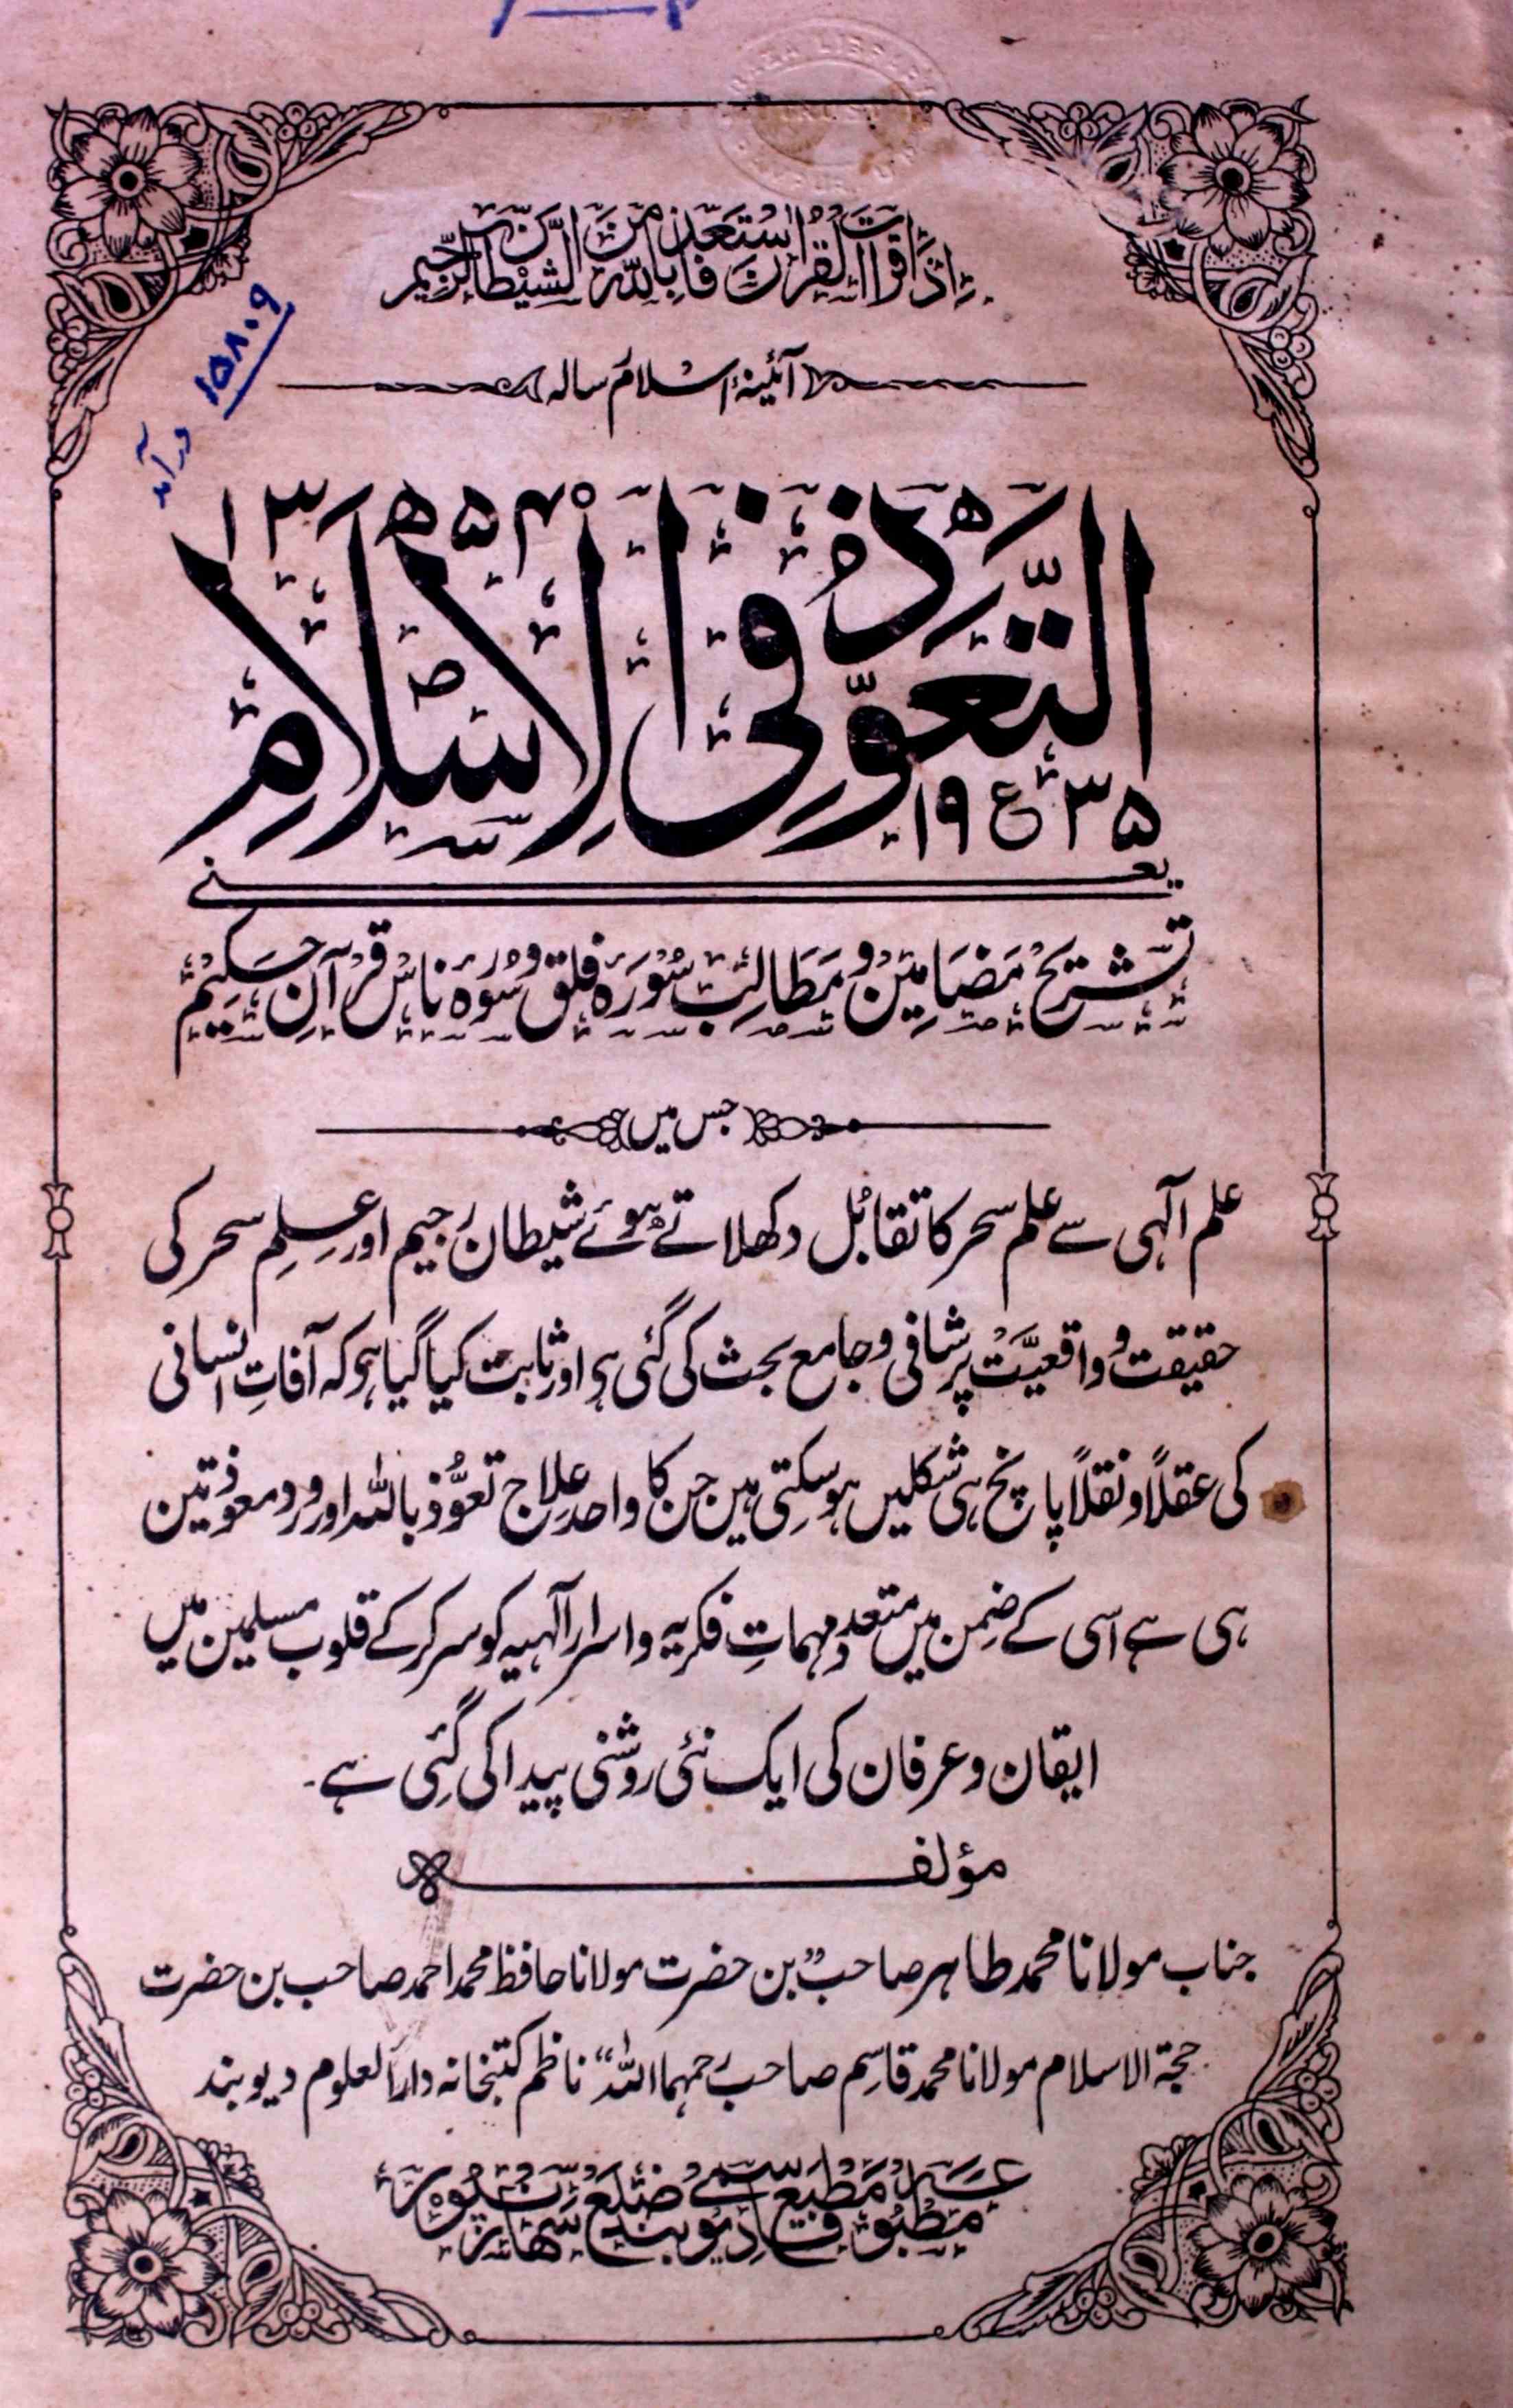 إِذَا قَرَأْتَ الْقُرْآنَ فَاسْتَعِذْ بِاللّٰهِ مِنَ الشَّيْطٰنِ الرَّجِيمِ
آئینۂ اسلام رسالہ
۱۵۸۰۹
درآمد
۱۳۵۴ھ
التَّعَوُّذ فِی الْاِسْلَامِ
۱۹۳۵ع
یعنی
تشریح مضامین و مطالب سُورَہ فلق و سُورہ ناس قرآنِ حکیم
جس میں
علم الٰہی سے علم سحر کا تقابُل دکھلاتے ہوئے شیطان رجیم اور عِلمِ سحر کی
حقیقت و واقعیّت پر شافی و جامع بحث کی گئی ہے اور ثابت کیا گیا ہو کہ آفاتِ انسانی
کی عقلاً و نقلاً پانچ ہی شکلیں ہو سکتی ہیں جن کا واحد علاج تعوُّذ باللہ اور ورد معوذتین
ہی ہے اسی کے ضمن میں متعدد مہماتِ فکریہ و اسرار الٰہیہ کو سر کر کے قلوب مسلمین میں
ایقان و عرفان کی ایک نئی روشنی پیدا کی گئی ہے۔
مؤلف
جناب مولانا محمد طاہر صاحبؒ بن حضرت مولانا حافظ محمد احمد صاحب بن حضرت
حجۃ الاسلام مولانا محمد قاسم صاحب رحمہما اللہ ناظم کتبخانہ دارالعلوم دیوبند
مطبوعہ مطبع قاسمی دیوبند ضلع سہارنپور